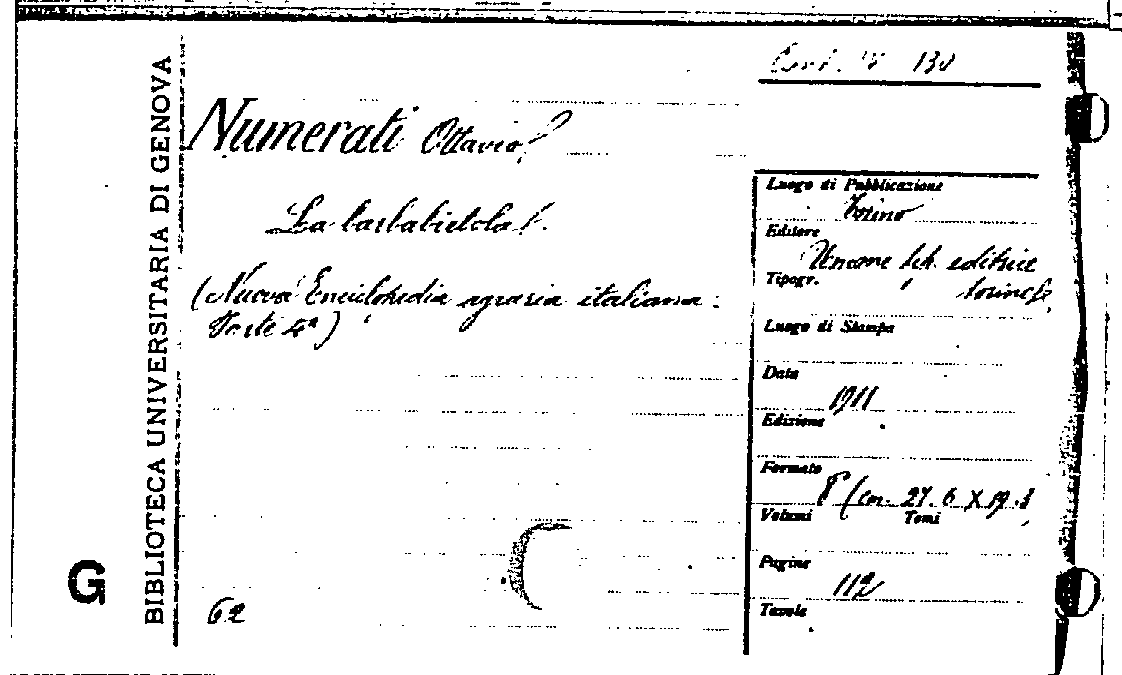 BIBLIOTECA UNIVERSITARIA DI GENOVA
G
130
Numerati Ottavio
La barbabietola
(Nuova Enciclopedia agraria italiana.
Parte 4ª)
62
Luogo di Pubblicazione
Torino
Editore
Unione tip. editrice
Tipogr.
torinese
Luogo di Stampa
Data
1911
Edizione
Formato
8° (cm. 27.6 X 19.
Volumi Tomi
Pagine
112
Tavole